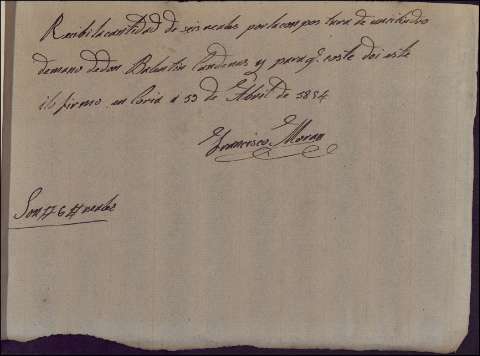 Recibi la cantidad de seis reales por la compostura de un
de mano de don Balentin Cardenas y para q. coste doi este
i lo firmo en Coria a 33 de Abril de 5854
Francisco Moran
Son # 6 # reales